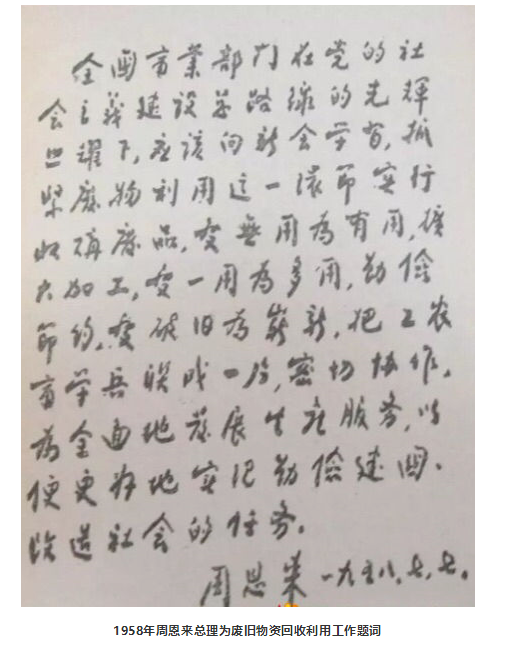 全国商业部门在党的社
会主义建设总路线的光辉
照耀下，应该向新会学习，抓
紧废物利用这一环节实行
收购废品，变無用為有用，扩
大加工，变一用為多用，勤俭
节约，变破旧為崭新，把工农
商学兵联成一片，密切协作，
为全面地发展生产服务，以
便更好地实现勤俭建国。
改造社会的任务。
周恩来 一九五八，七，七。
1958年周恩来总理为废旧物资回收利用工作题词